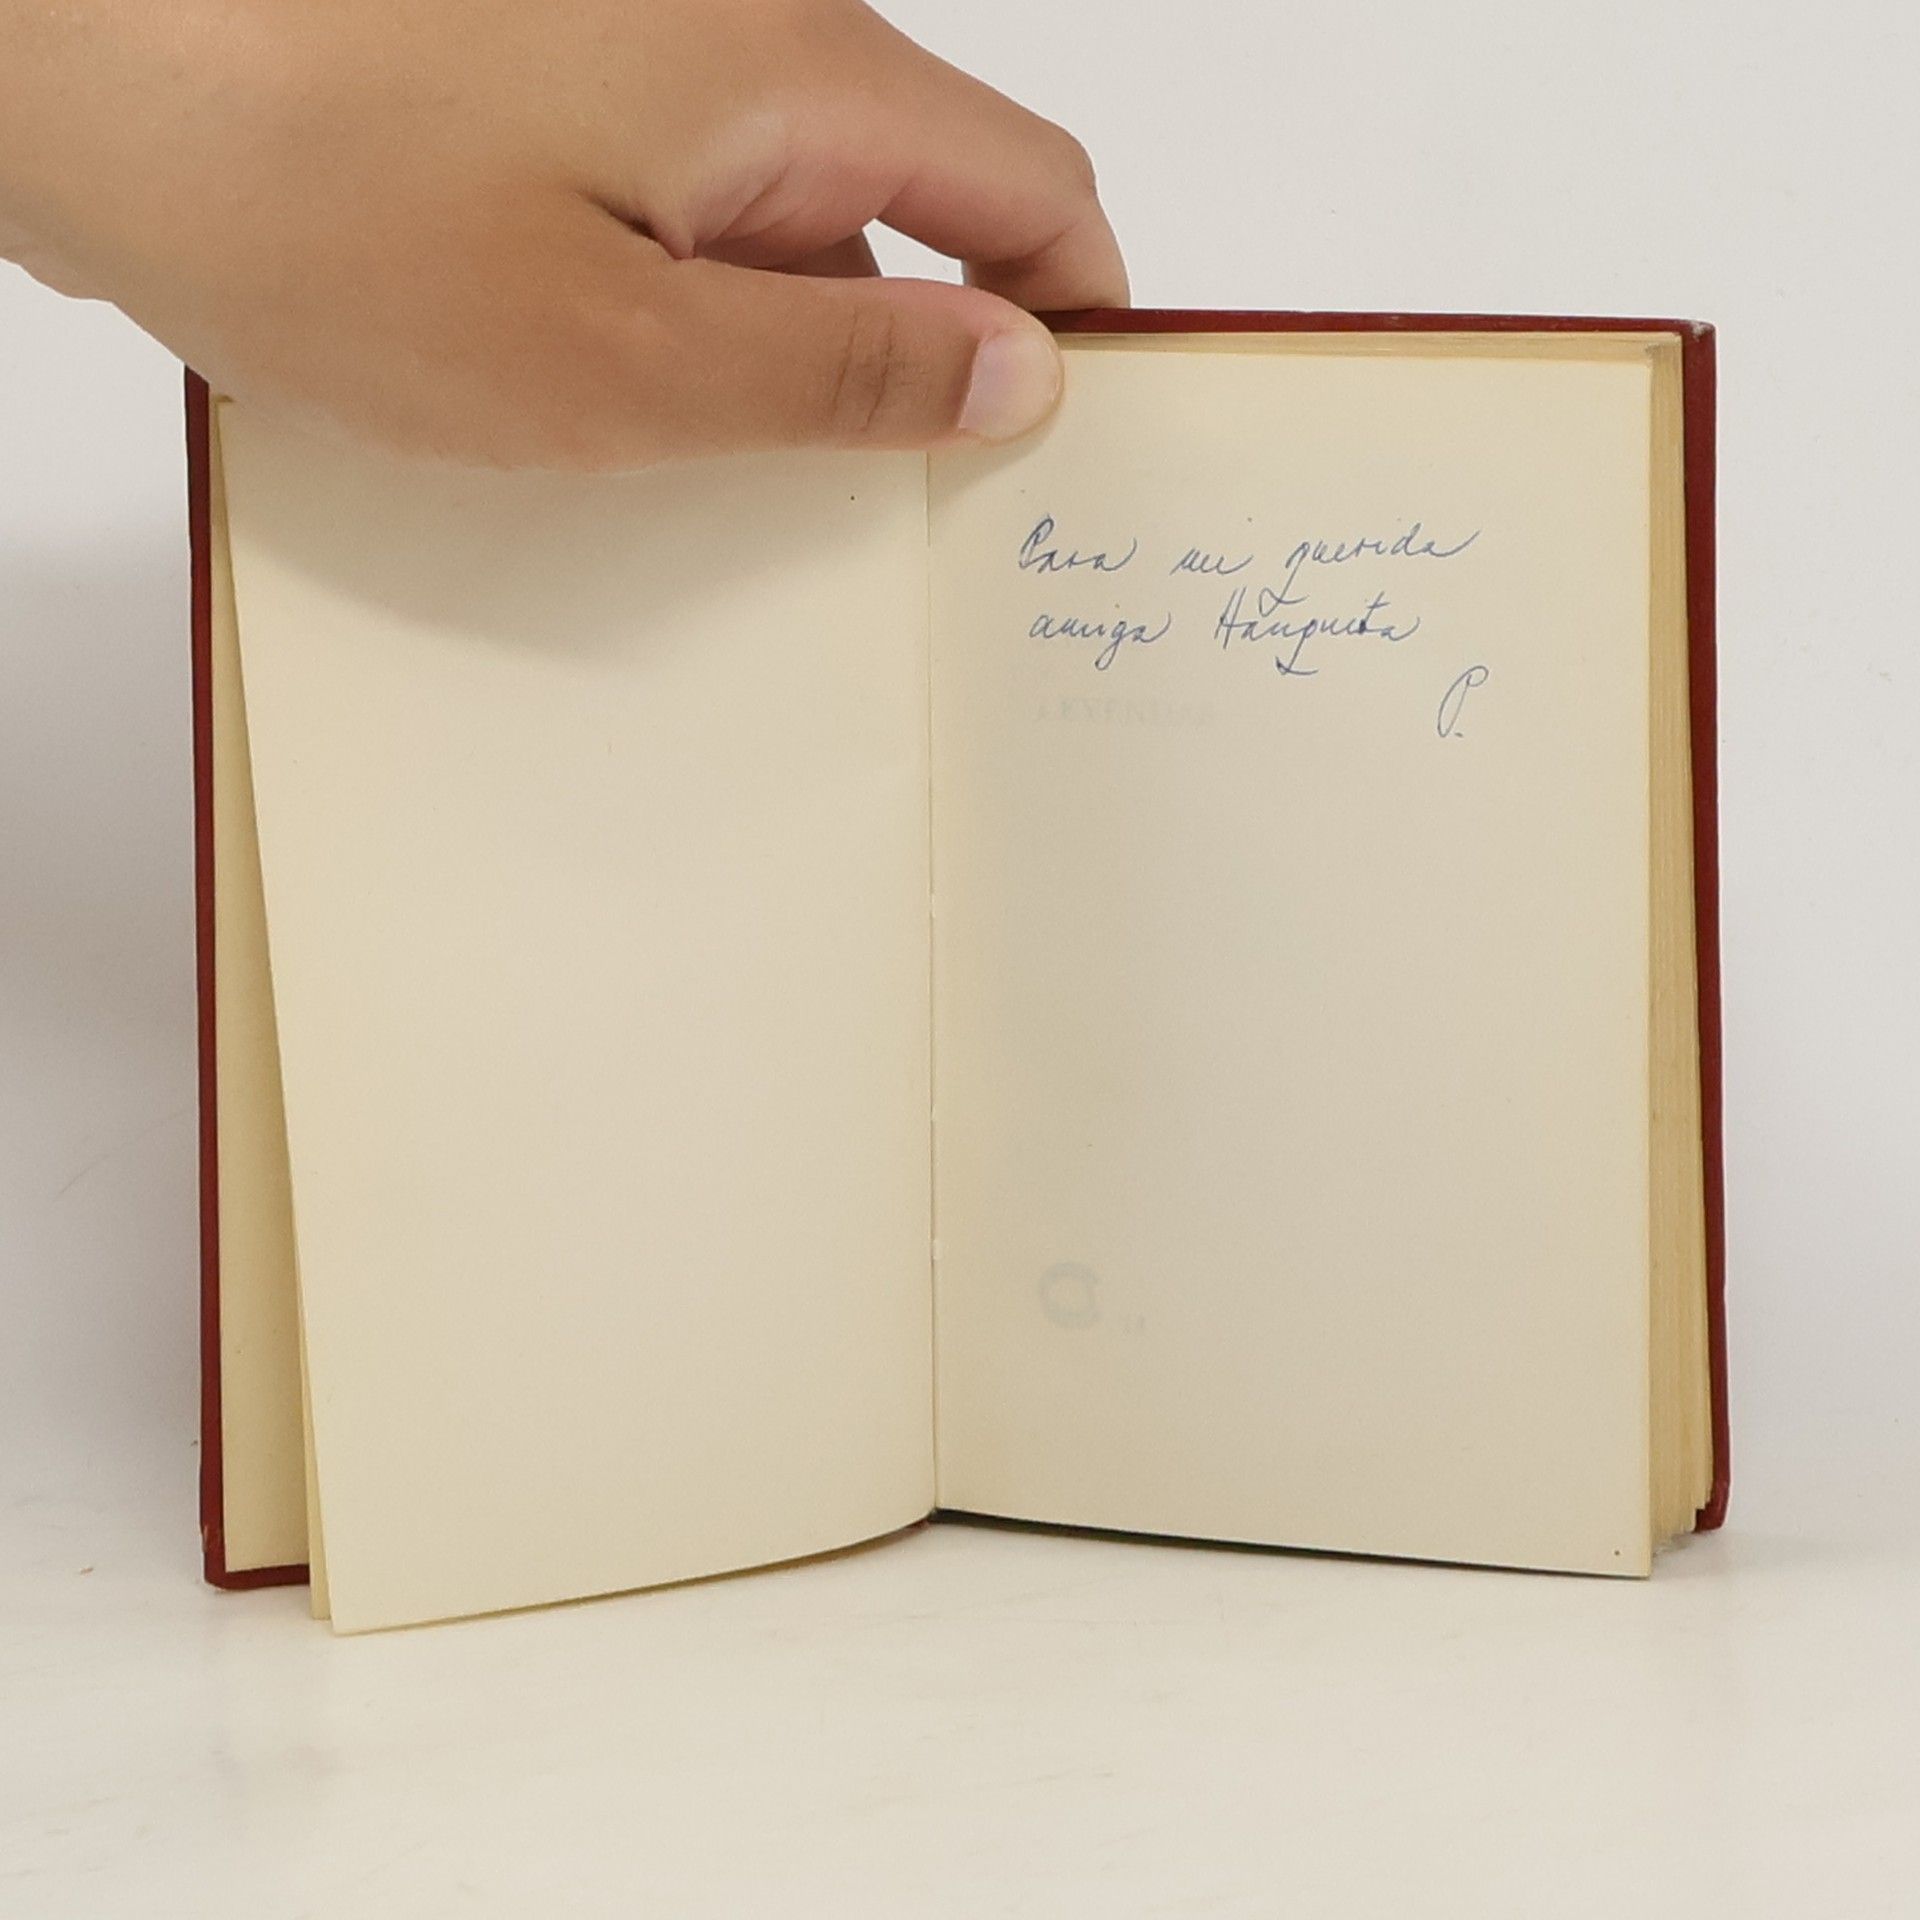 Para mi querida
amiga Hanquita
P.